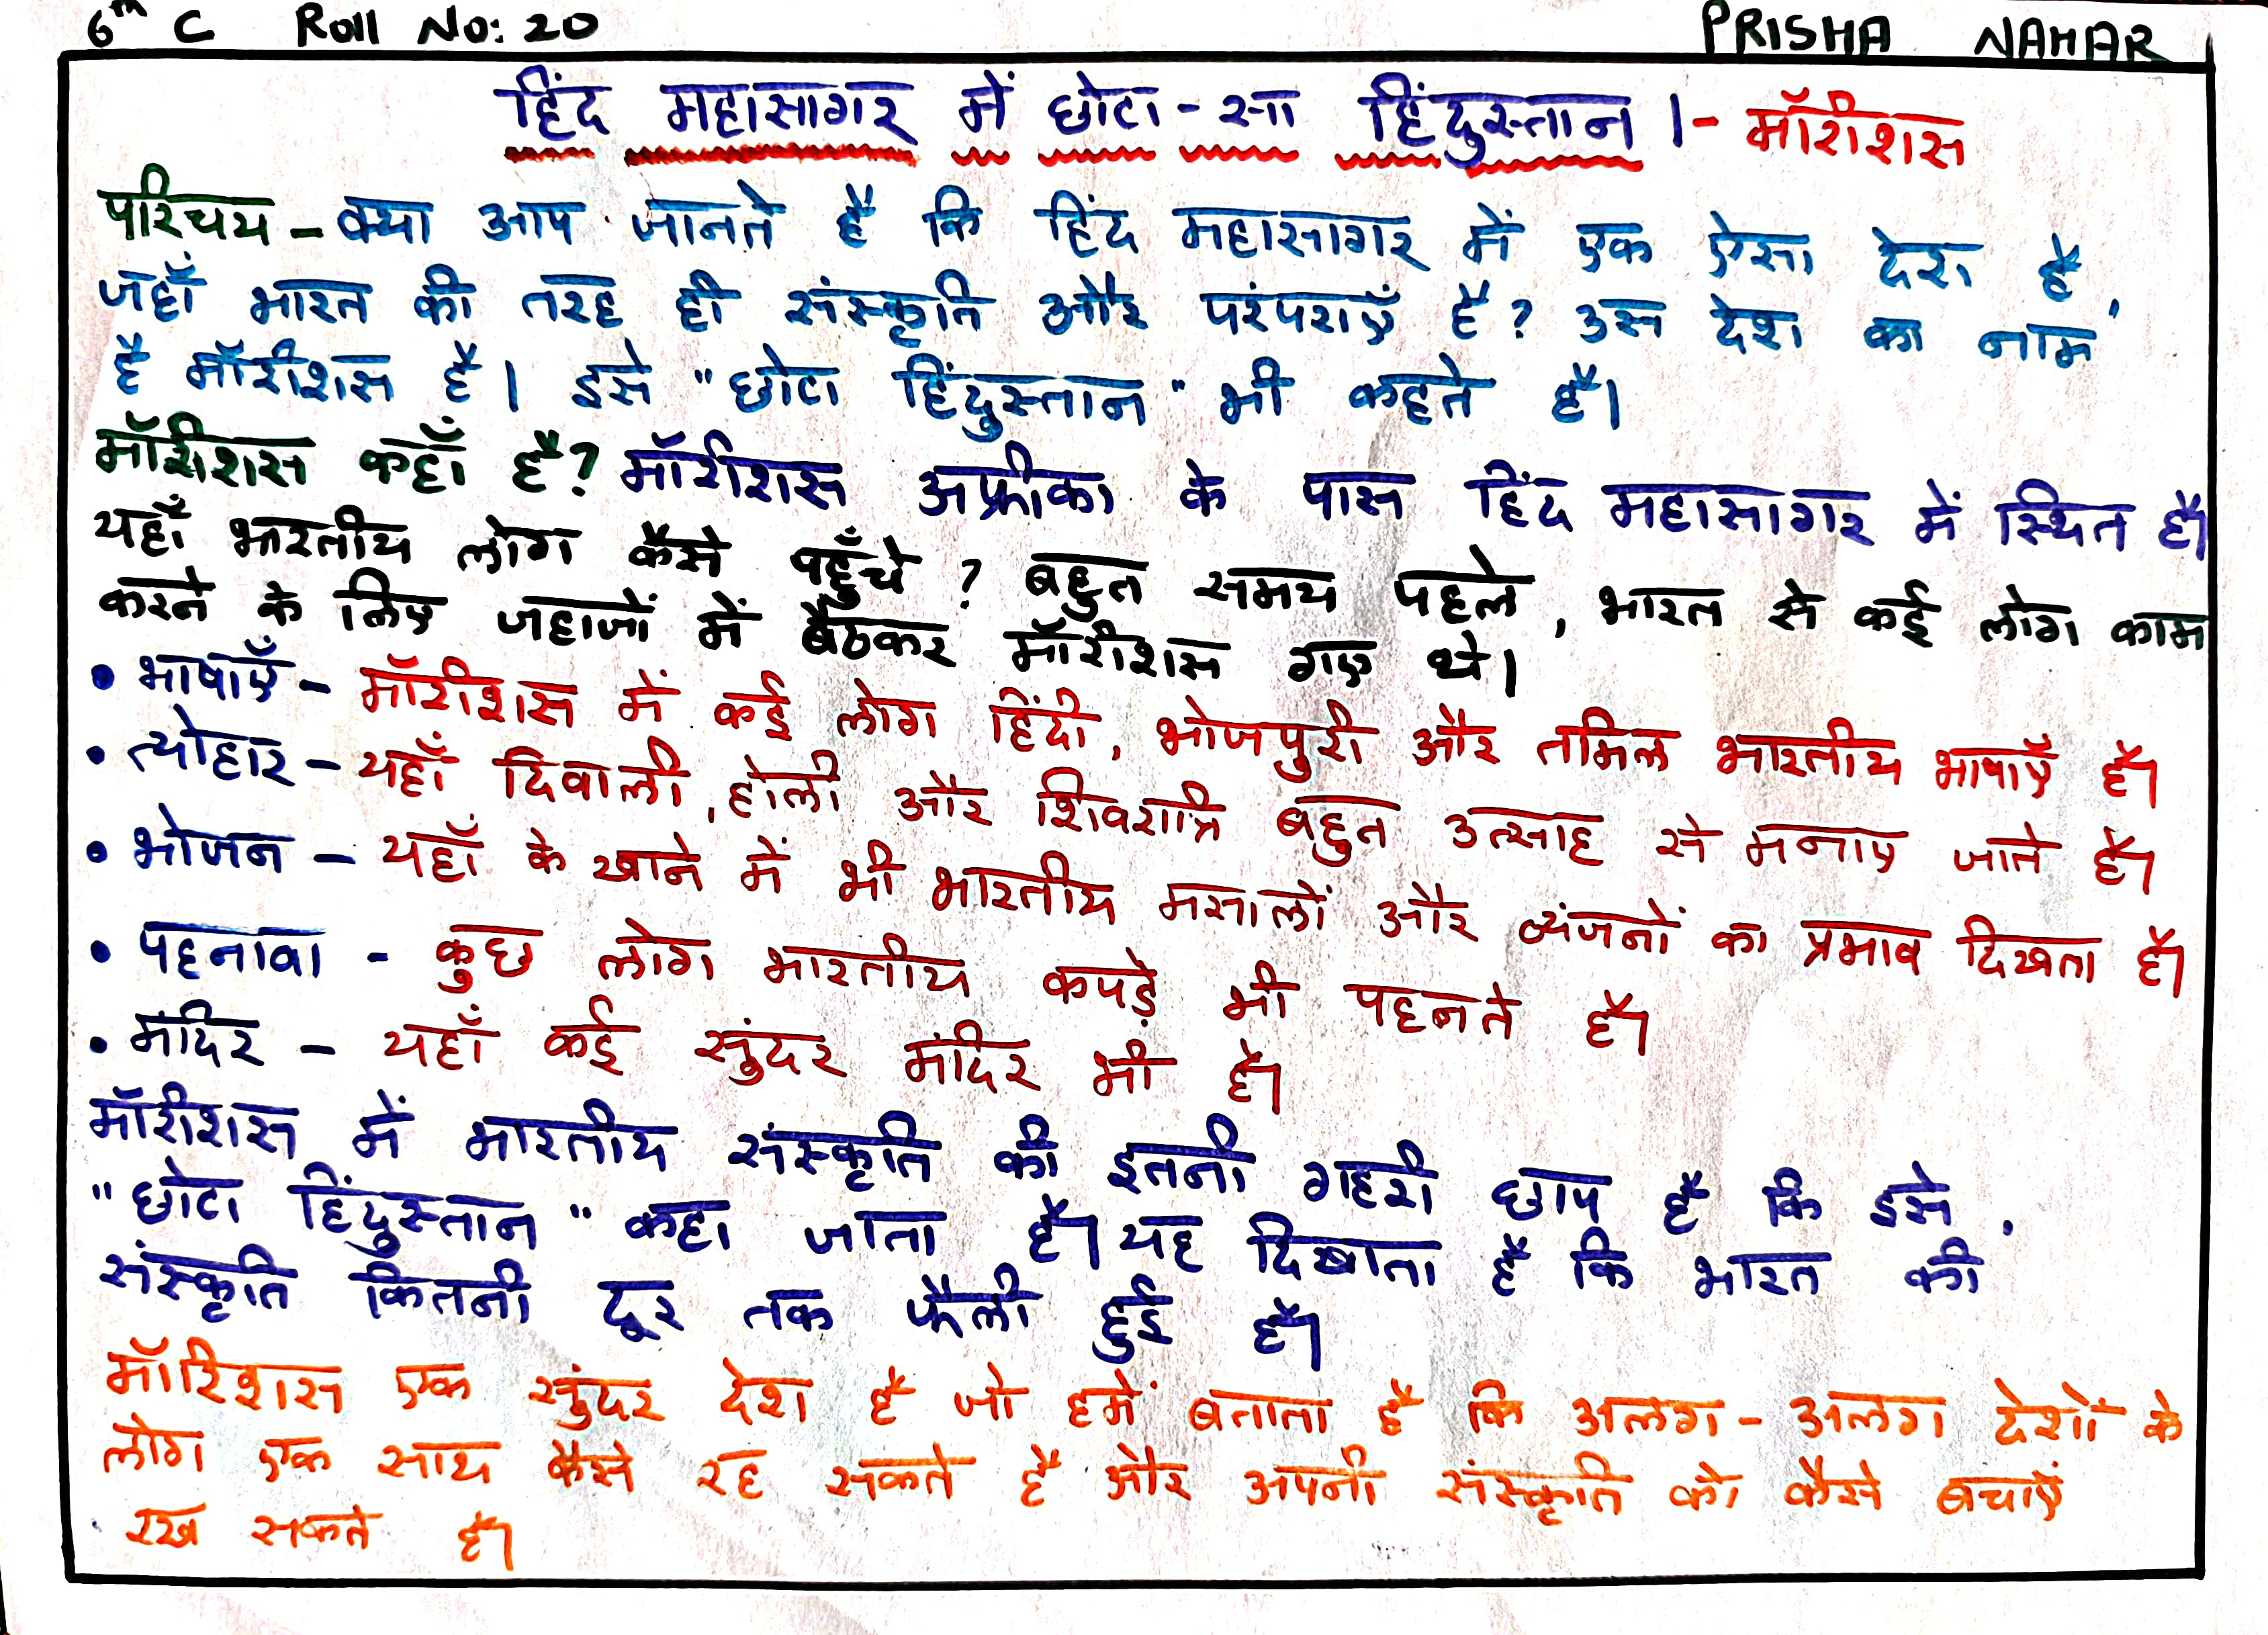 6th C Roll No: 20 PRISHA NAHAR
हिंद महासागर में छोटा-सा हिंदुस्तान।- मॉरीशस
परिचय - क्या आप जानते हैं कि हिंद महासागर में एक ऐसा देश है,
जहाँ भारत की तरह ही संस्कृति और परंपराएँ हैं? उस देश का नाम
है मॉरीशस है। इसे "छोटा हिंदुस्तान" भी कहते हैं।
मॉरीशस कहाँ है? मॉरीशस अफ्रीका के पास हिंद महासागर में स्थित है।
यहाँ भारतीय लोग कैसे पहुँचे? बहुत समय पहले, भारत से कई लोग काम
करने के लिए जहाजों में बैठकर मॉरीशस गए थे।
• भाषाएँ - मॉरीशस में कई लोग हिंदी, भोजपुरी और तमिल भारतीय भाषाएँ हैं।
• त्योहार - यहाँ दिवाली, होली और शिवरात्रि बहुत उत्साह से मनाए जाते हैं।
• भोजन - यहाँ के खाने में भी भारतीय मसालों और व्यंजनों का प्रभाव दिखता है।
• पहनावा - कुछ लोग भारतीय कपड़े भी पहनते हैं।
• मंदिर - यहाँ कई सुंदर मंदिर भी हैं।
मॉरीशस में भारतीय संस्कृति की इतनी गहरी छाप है कि इसे,
"छोटा हिंदुस्तान" कहा जाता है। यह दिखाता है कि भारत की
संस्कृति कितनी दूर तक फैली हुई है।
मॉरिशस एक सुंदर देश है जो हमें बताता है कि अलग-अलग देशों के
लोग एक साथ कैसे रह सकते हैं और अपनी संस्कृति को कैसे बचाएं
रख सकते हैं।